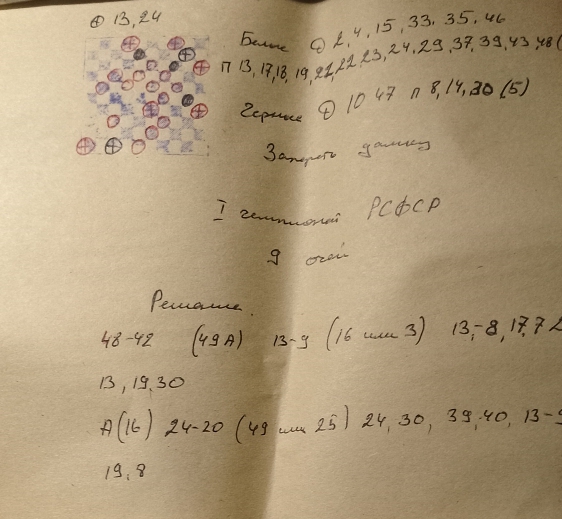 ⊕ 13,24
Белые ⊕ 2,4,15,33,35,46
п 13,17,18,19,21,22,23,24,29,37,39,43,48(
Черные ⊕ 10 47 п 8,14,30 (5)
Запереть дамку
I чемпионат РСФСР
9 очей
Решение.
48-42 (49А) 13-9 (16 или 3) 13,-8, 17,7
13, 19,30
А(16) 24-20 (49 или 25) 24,30, 39,40, 13-9
19,8